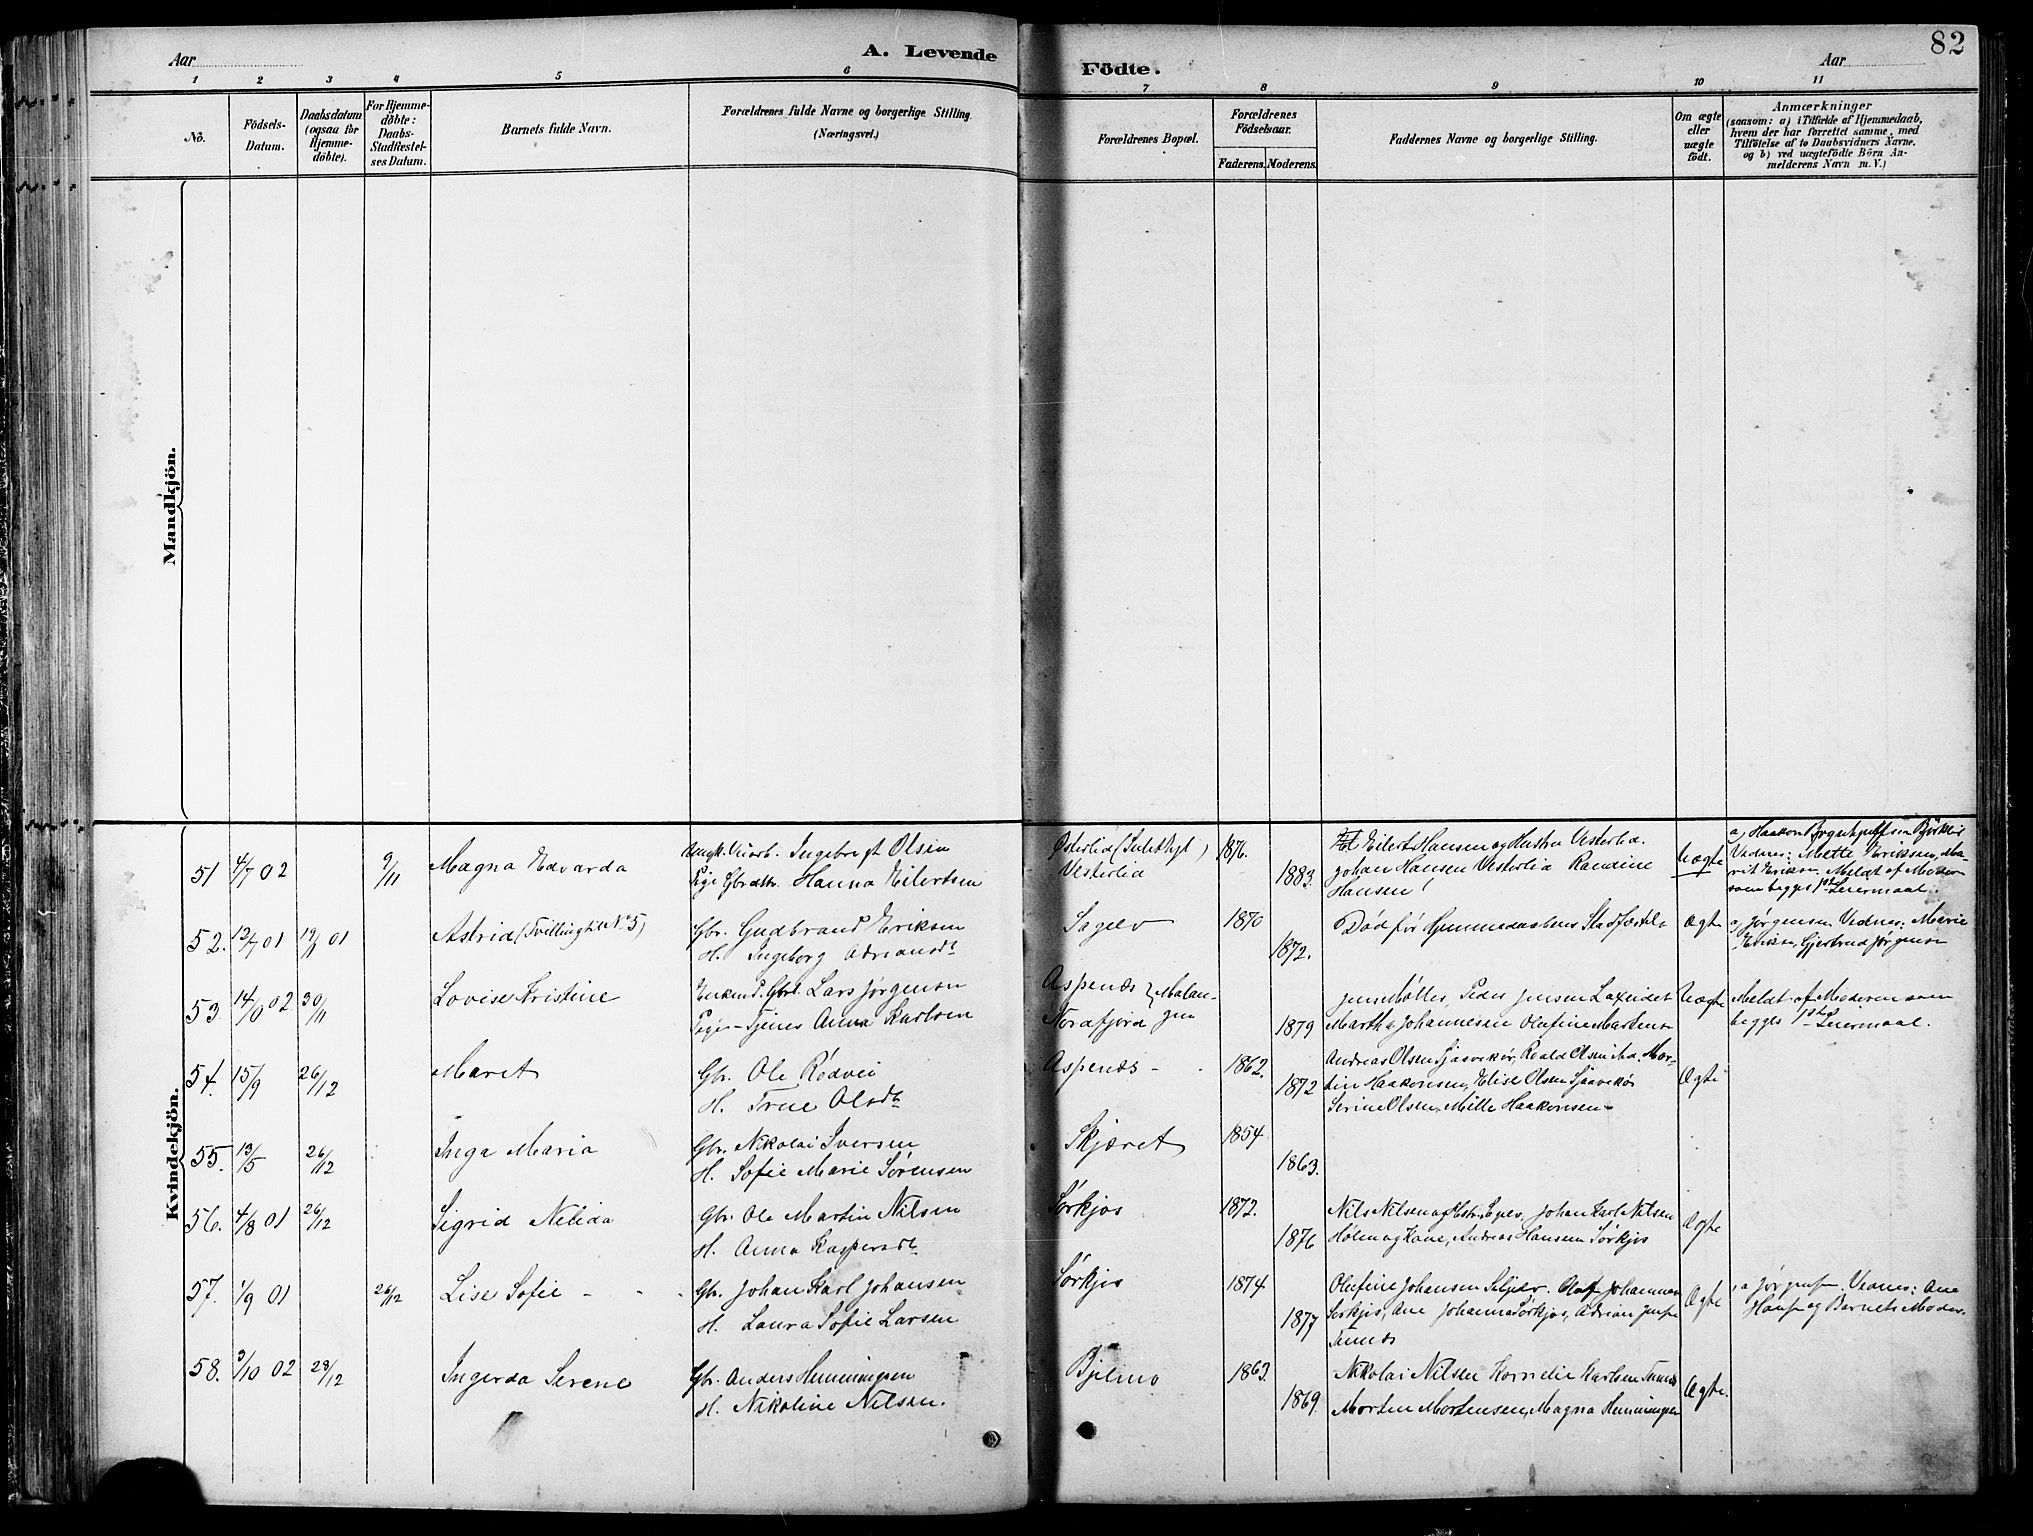 82
A. Levende
Födte.
Aar
Aar
1 2 3 4 5 6 7 8 9 10 11
No.
Födsels-
Datum.
Daabsdatum
(ogsaa for
Hjemme-
döbte).
For Hjemme-
döbte:
Daabs-
Stadfæstel-
ses Datum.
Barnets fulde Navn.
Forældrenes fulde Navne og borgerlige Stilling
(Næringsvei.)
Forældrenes Bopæl.
Forældrenes
Födselsaar.
Faderens. Moderens.
Faddernes Navne og borgerlige Stilling.
Om ægte
eller
uægte
födt.
Anmærkninger
(saasom: a) i Tilfælde af Hjemmedaab,
hvem der har forrettet samme, med
Tilföielse af to Daabsvidners Navne.
og b) ved uægtefödte Börn An-
melderens Navn m. V.)
Mandkjön.
Kvindekjön.
51 4/7 02 9/11 Magna Edvarda
Ingebrigt Olsen
Pige Hanna Eilertsen
Vesterlid
1876.
1883.
Eilert Hansen og Hustru Vesterlid.
Johan Hansen Vesterlid Randine
Hansen
Uægte
Vidner: Mette Eriksen,
Meldt af Moderen
som begges 1ste Leiermaal.
52. 13/7 01 01 Astrid (Tvilling til No 5)
Gbr. Gudbrand Eriksen
H. Ingeborg Adriansdt
Sagelv
1870
1872.
Død før Hjemmedaabens Stadfæstelse
Ægte
a) Jørgensen Vidner: Marie
Eriksen, Gjertrud Jørgensen
53. 02 30/11 Lovise Kristine
Lars Jørgensen
Pige - Tjenes Anna Karlsen
Aspenæs
Nordfjord } Malan-
gen
1879
Jens Møller, Peder Jensen
Martha Johannesen Olufine Martens
Uægte
Meldt af Moderen som
begges 1ste Leiermaal.
54. 15/9 26/12 Maret
Gbr. Ole Rødvei
H. Trine Olsdt
Aspenæs -
1862.
1872
Andreas Olsen Sjaavikør, Roald Olsen Mar-
tin Haakonsen, Elise Olsen Sjaavikør
Serine Olsen, Mette Haakonsen -
Ægte
55. 13/5 26/12 Inga Maria
Gbr. Nikolai Iversen
H. Sofie Marie Sørensen
Skjæret
1854
1863.
56. 4/8 01 26/12 Sigrid Nelida
Gbr. Ole Martin Nilsen
H. Anna Kaspersdt
Sørkjos
1872.
1876
Nils Nilsen og Johan Karl Nilsen
Holm og Kone, Andreas Hansen Sørkjos
Ægte
57. 1/9 01 26/12 Lise Sofie - -
Gbr. Johan Karl Johansen
H. Laura Sofie Larsen
Sørkjos
1874
1877
Olufine Johansen Olaf Johannesen
Sørkjos, Ane Johanna Sørkjos, Adrian
Ægte
Vidnes: Ane
og Barnets Moder.
58. 3/10 02 28/12 Ingerda Serene
Gbr. Anders Henningsen
H. Nikoline Nilsen.
Bjelmo
1863.
1869.
Nikolai Nilsen Kornelie Karlsen
Morten Mortensen, Magna Henningsen
Ægte.